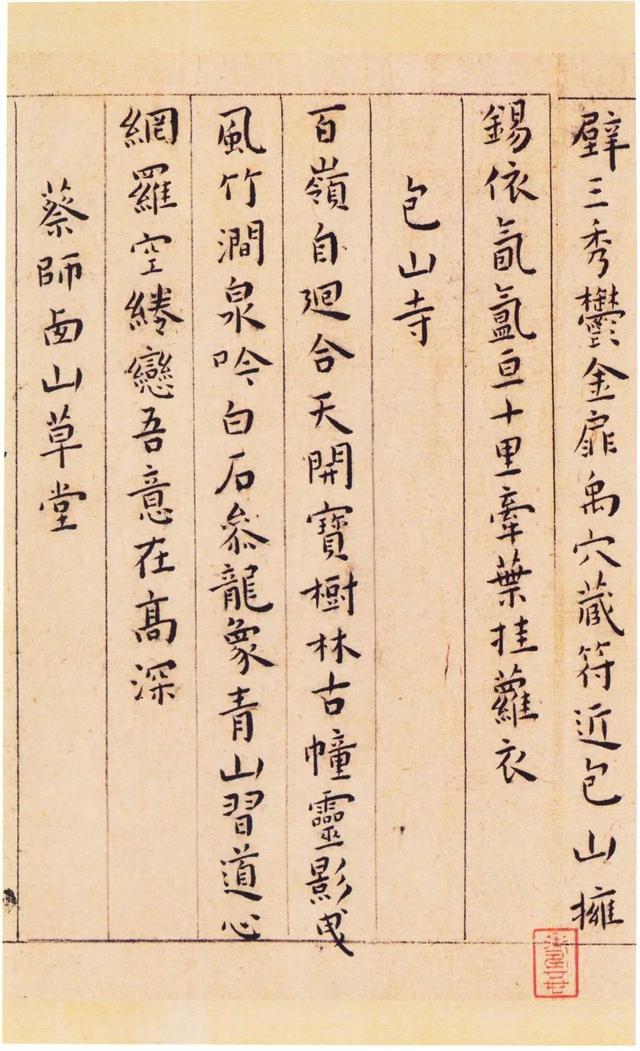 壁三秀鬱金扉禹穴藏符近包山擁
錫依氤氳亘十里牽葉挂蘿衣
包山寺
百嶺自迴合天開寶樹林古幢靈影曵
風竹澗泉吟白石叅龍象青山習道心
網羅空綣戀吾意在高深
蔡師西山草堂